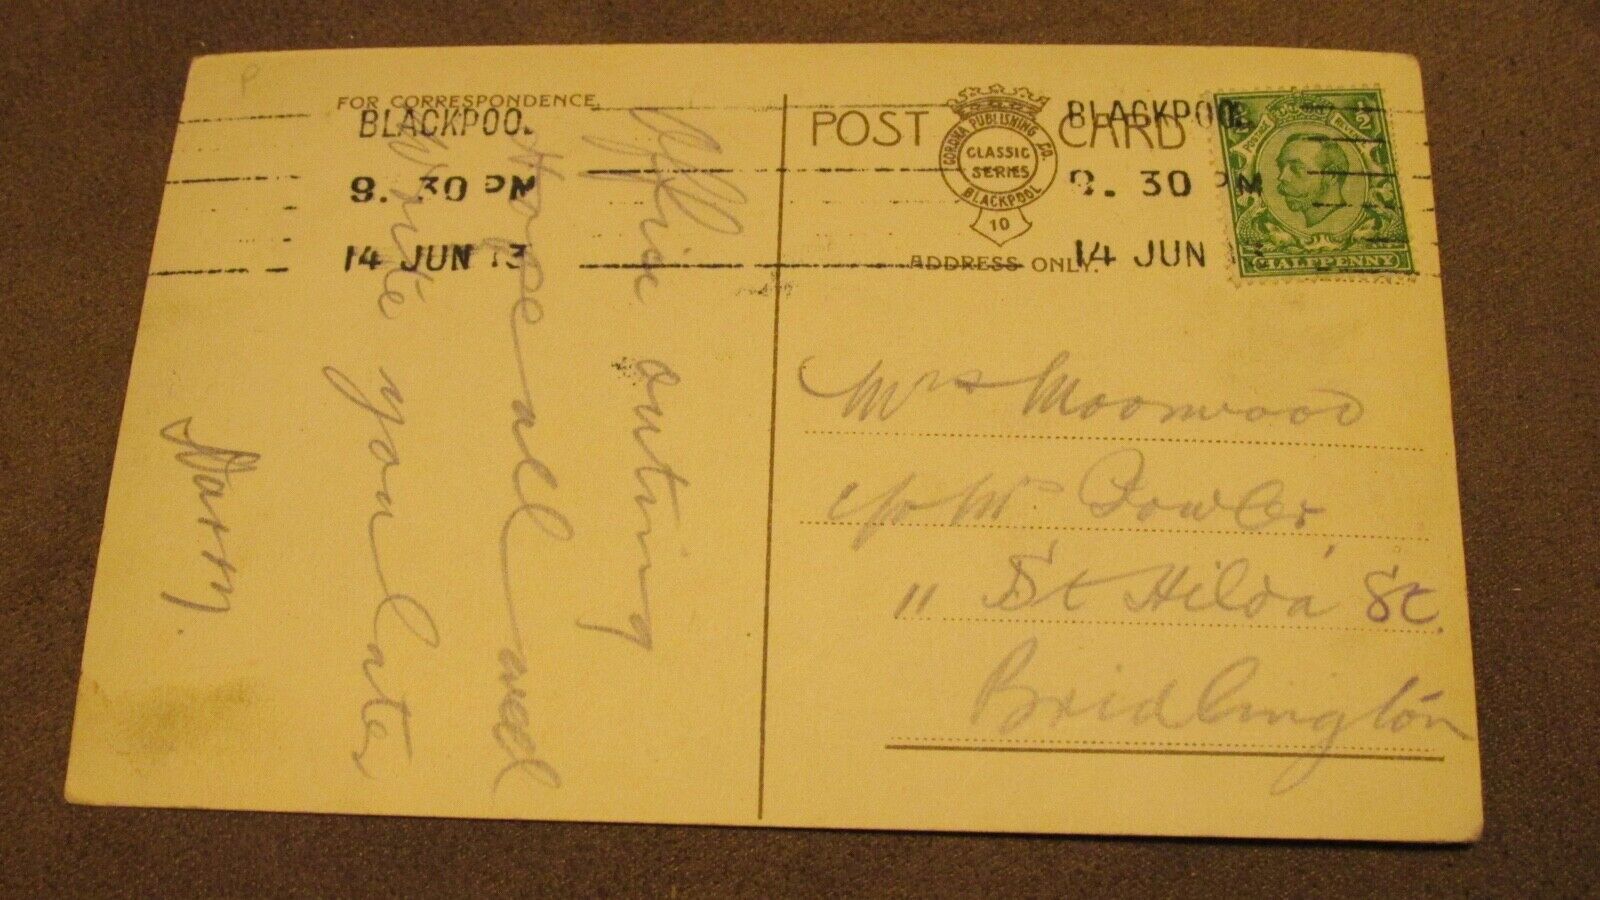 P
FOR CORRESPONDENCE.
BLACKPOO
8. 30 PM
14 JUN 13
Office outing
Hope all well
Write you later
Harry.
POST CARD
CORONA PUBLISHING CO.
BLACKPOOL
CLASSIC
SERIES
10
ADDRESS ONLY.
BLACKPOO
30 PM
14 JUN
POSTAGE REVENUE
1/2
HALFPENNY
Mrs Moorwood
c/o Mrs Fowler,
11 St Hilda St.
Bridlington